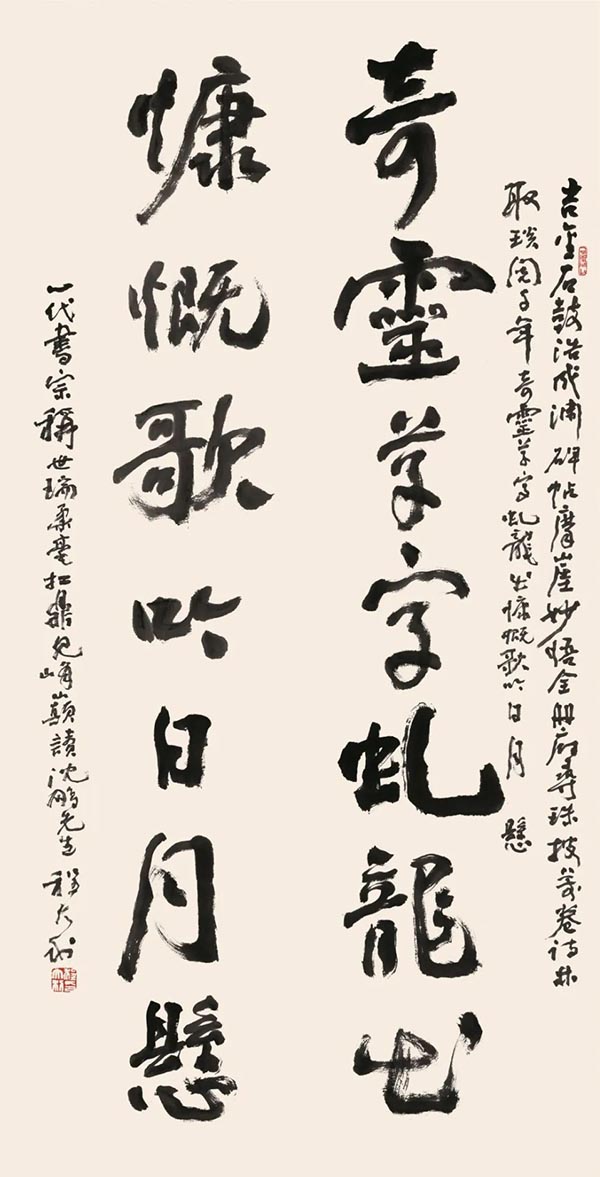 吉金石鼓浩成渊碑帖摩崖妙悟全册府尋珠披萬卷诗林
取琰阅千年奇靈草字虬龍出慷慨歌吟日月懸
奇靈草字虬龍出
慷慨歌吟日月懸
一代書宗稱世瑞柔毫扛鼎見峰巔讀沈鵬先生程大利